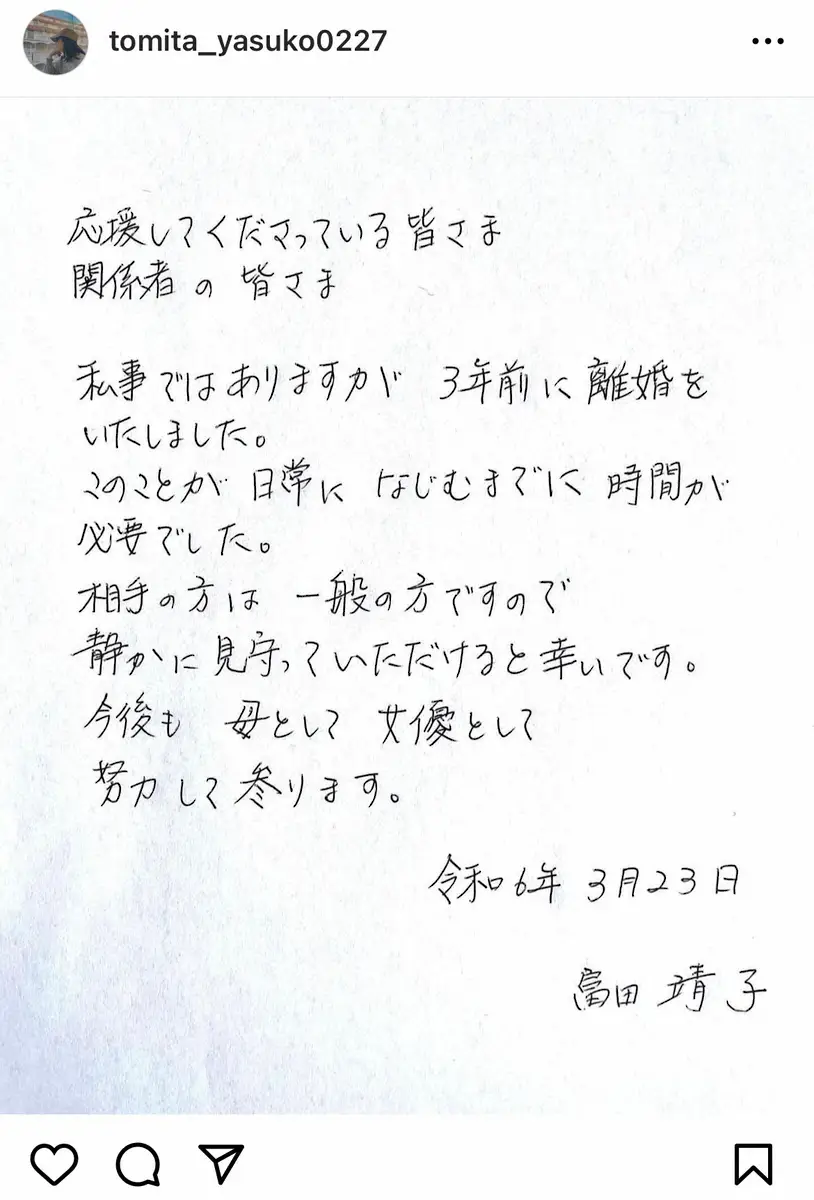 tomita_yasuko0227
応援してくださっている皆さま
関係者の皆さま
私事ではありますが 3年前に離婚を
いたしました。
このことが 日常に なじむまでに 時間が
必要でした。
相手の方は 一般の方ですので
静かに見守っていただけると幸いです。
今後も 母として 女優として
努力して参ります。
令和6年 3月23日
富田 靖子